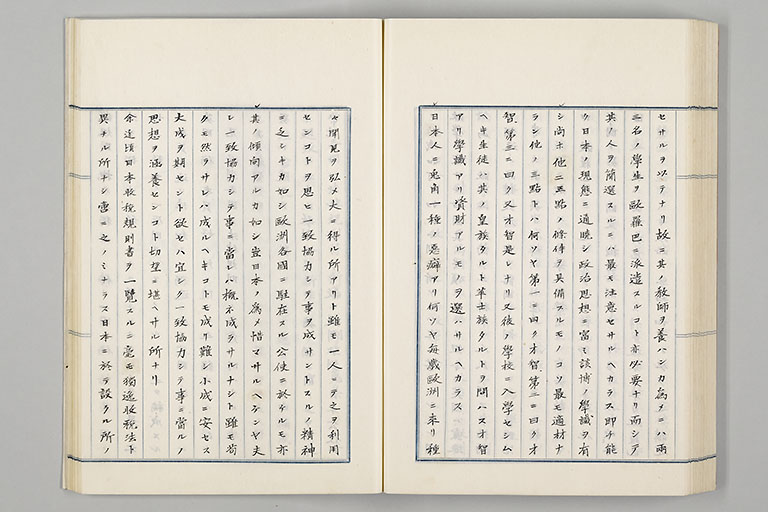 セサルヲ以テナリ故ニ其ノ教師ヲ養ハンカ為メニハ兩
三名ノ學生ヲ歐羅巴ニ派遣スルコト亦必要ナリ而シテ
其ノ人ヲ簡選スルニハ最モ注意セサルヘカラス即チ能
ク日本ノ現態ニ通曉シ政治思想ニ富ミ該博ノ學識ヲ有
シ尚ホ他ニ三點ノ條件ヲ具備スルモノコソ最モ適材ナ
ラン他ノ三點トハ何ソヤ第一ニ曰ク才智第二ニ曰ク才
智第三ニ曰ク又才智是レナリ又後ノ學校ニ入學セシム
ヘキ生徒ハ其ノ皇族タルト華士族タルトヲ問ハス才智
アリ學識アリ資財アルモノヲ選ハサルヘカラス
日本人ニ兎角一種ノ惡癖アリ何ソヤ每歲歐洲ニ來リ種
々聞見ヲ弘メ大ニ得ル所アリト雖モ一人ニテ之ヲ利用
センコトヲ思ヒ一致協力シテ事ヲ成サントスルノ精神
ニ乏シキカ如シ歐洲各國ニ駐在スル公使ニ於ケルモ亦
其ノ傾向アルカ如シ豈日本ノ為メ惜マサルヘケンヤ夫
レ一致協力シテ事ニ當レハ概ネ成ラサルナシト雖モ苟
クモ然ラサレハ成ルヘキコトモ成リ難シ小成ニ安セス
大成ヲ期セント欲セハ宜シク一致協力シテ事ニ當ルノ
思想ヲ涵養センコト切望ニ堪ヘサル所ナリ
余近頃日本收稅規則書ヲ一覽スルニ毫モ獨逸收稅法ト
異ナル所ナシ啻ニ之ノミナラス日本ニ於テ設クル所ノ